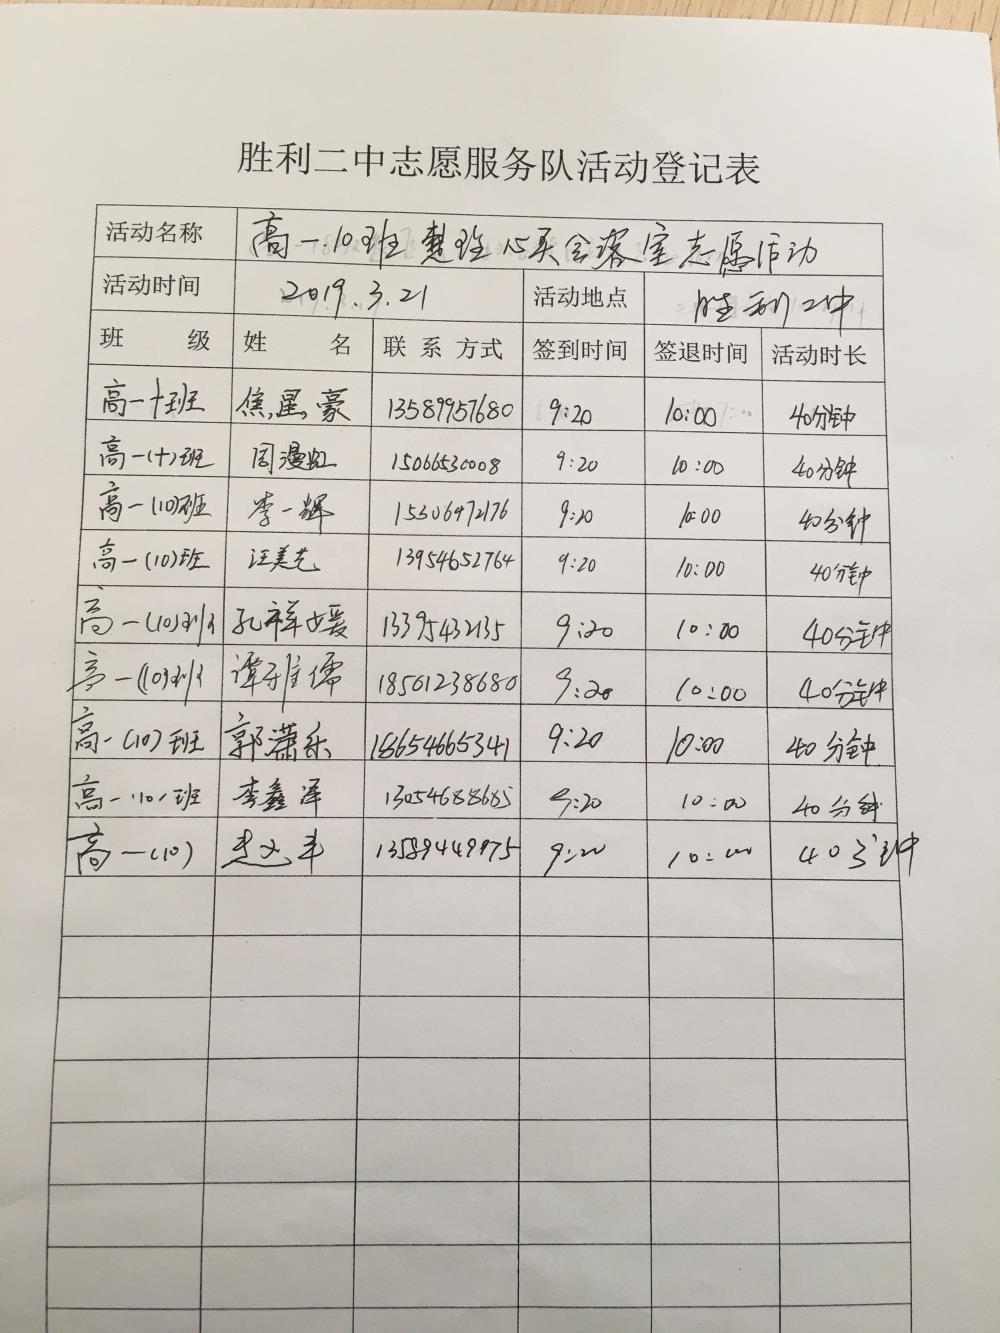 胜利二中志愿服务队活动登记表
活动名称 高一.10班整理心灵会客室志愿活动
活动时间 2019.3.21 活动地点 胜利二中
班 级 姓 名 联 系 方式 签到时间 签退时间 活动时长
高一十班 焦星豪 13589957680 9:20 10:00 40分钟
高一(十)班 周漫虹 15066530008 9:20 10:00 40分钟
高一(10)班 李一辉 15306472176 9:20 10:00 40分钟
高一(10)班 汪美艺 13954652764 9:20 10:00 40分钟
高一(10)班 孔祥媛 13395432135 9:20 10:00 40分钟
高一(10)班 谭雅儒 18561238680 9:20 10:00 40分钟
高一(10)班 郭潇乐 18654665341 9:20 10:00 40分钟
高一(10)班 李鑫泽 13054688685 9:20 10:00 40分钟
高一(10) 13589449975 9:20 10:00 40分钟